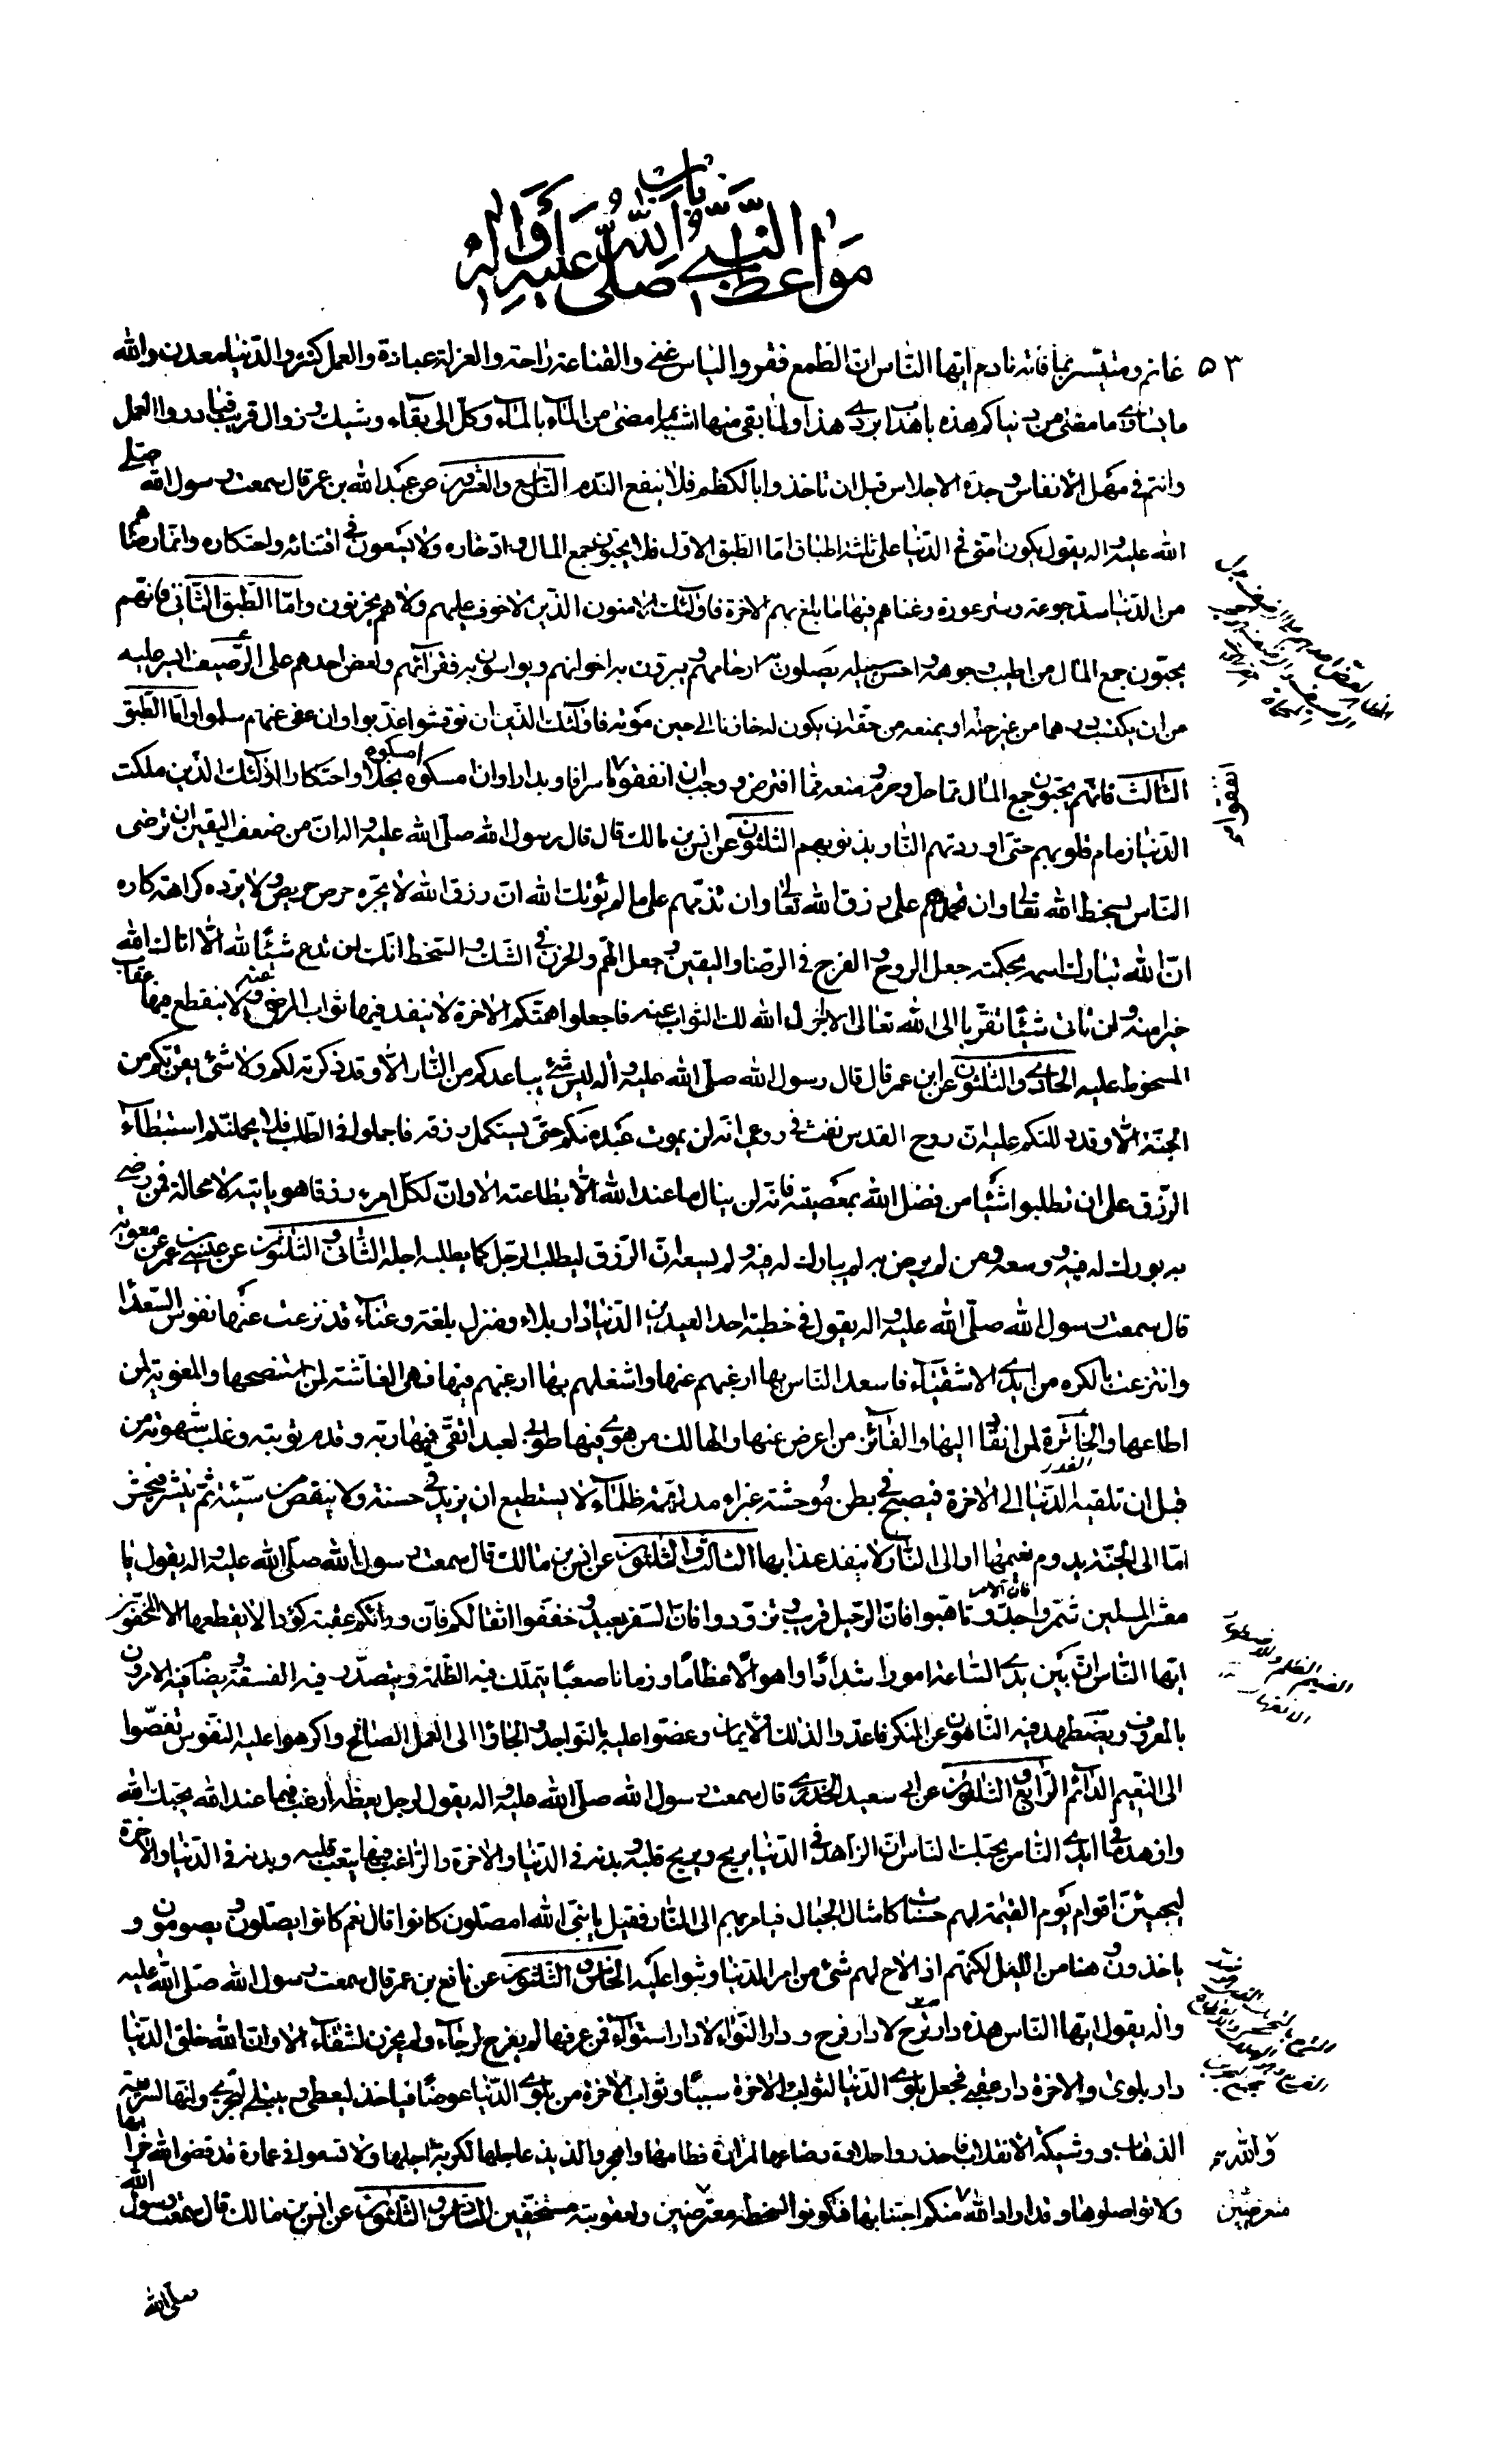 باب
مواعظ النبي صلى الله عليه وآله
٥٣
غانم ومتيسر بما فاته نادم ايها الناس ان الطمع فقر والياس غنى والقناعة راحة والعزلة عبادة والعمل كنز والدنيا معدن والله
ما يساوى ما مضى من دنياكم هذه باهداب بردى هذا ولما بقى منها اشبه بما مضى من الماء بالماء وكل الى بقاء وشيك وزوال قريب فبادروا العمل
وانتم فى مهل الانفاس وجدة الاحلاس قبل ان تاخذوا بالكظم فلا ينفع الندم التاسع والعشرون عن عبد الله بن عمر قال سمعت رسول الله صلى
الله عليه واله يقول يكون امتى فى الدنيا على ثلثة اطباق اما الطبق الاول فلا يحبون جمع المال وادخاره ولا يسعون فى اقتنائه واحتكاره وانما رضاهم
من الدنيا سد جوعة وستر عورة وغناهم فيها ما بلغ بهم الاخرة فاولئك الامنون الذين لا خوف عليهم ولا هم يحزنون واما الطبق الثانى فانهم
يحبون جمع المال من اطيب وجوهه واحسن سبيله يصلون به ارحامهم ويبرون به اخوانهم ويواسون به فقرائهم ولعض احدهم على الرضيف ايسر عليه
من ان يكتسب درهما من غير حله او يمنعه من حقه ان يكون له خازنا الى حين موته فاولئك الذين ان نوقشوا عذبوا وان عفى عنهم سلموا واما الطبق
الثالث فانهم يحبون جمع المال مما حل وحرم ومنعه مما افترض ووجب ان انفقوه اسرافا وبدارا وان امسكوه بخلا واحتكارا اولئك الذين ملكت
امسكوه
الدنيا زمام قلوبهم حتى اوردتهم النار بذنوبهم الثلثون عن انس بن مالك قال قال رسول الله صلى الله عليه واله ان من ضعف اليقين ان ترضى
الناس بسخط الله تعالى وان تحمدهم على رزق الله تعالى وان تذمهم على ما لم يؤتك الله ان رزق الله لا يجره حرص حريص ولا يرده كراهة كاره
ان الله تبارك اسمه بحكمته جعل الروح والفرج فى الرضا واليقين وجعل الهم والحزن فى الشك والسخط انك لن تدع شيئا لله الا اتاك الله
خيرا منه ولن تاتى شيئا تقربا الى الله تعالى الا اجزل الله لك الثواب عنه فاجعلوا همتكم الاخرة لا ينفد فيها ثواب المرضى عنه ولا ينقطع فيها عقاب
المسخوط عليه الحادى والثلثون عن ابن عمر قال قال رسول الله صلى الله عليه واله ليس شئ يباعدكم من النار الا وقد ذكرته لكم ولا شئ يقربكم من
الجنة الا وقد دللتكم عليه ان روح القدس نفث فى روعى انه لن يموت عبد منكم حتى يستكمل رزقه فاجملوا فى الطلب فلا يحملنكم استبطاء
الرزق على ان تطلبوا شيئا من فضل الله بمعصيته فانه لن ينال ما عند الله الا بطاعته الا وان لكل امرء رزقا هو ياتيه لا محالة فمن رضى
به بورك له فيه ووسعه ومن لم يرض به لم يبارك له فيه ولم يسعه ان الرزق ليطلب الرجل كما يطلبه اجله الثانى والثلثون عن عيسى بن عمر عن معوية
قال سمعت رسول الله صلى الله عليه واله يقول فى خطبته احد العيدين الدنيا دار بلاء ومنزل بلغة وعناء قد نزعت عنها نفوس السعداء
وانتزعت بالكره من ايدى الاشقياء فاسعد الناس بها ارغبهم عنها واشغلهم بها ارغبهم فيها فهى الغاشة لمن استنصحها والمغوية لمن
اطاعها والخائرة لمن انقاد اليها والفائز من اعرض عنها والهالك من هوى فيها طوبى لعبد اتقى فيها ربه وقدم توبته وغلب شهوته من
قبل ان تلقيه الدنيا الى الاخرة فيصبح فى بطن موحشة غبراء مدلهمة ظلماء لا يستطيع ان يزيد فى حسنة ولا ينقص من سيئة ثم ينشر فيحشر
اما الى الجنة يدوم نعيمها او الى النار لا ينفد عذابها الثالث والثلثون عن انس بن مالك قال سمعت رسول الله صلى الله عليه واله يقول يا
معشر المسلمين شمروا فان الامر جد وتاهبوا فان الرحيل قريب وتزودوا فان السفر بعيد وخففوا اثقالكم فان ورائكم عقبة كؤدا لا يقطعها الا المخفون
ايها الناس ان بين يدى الساعة امورا شدادا واهوالا عظاما وزمانا صعبا يتملك فيه الظلمة ويتصدر فيه الفسقة ويضام فيه الامرون
بالمعروف ويضطهد فيه الناهون عن المنكر فاعدوا لذلك الايمان وعضوا عليه بالنواجذ والجاوا الى العمل الصالح واكرهوا عليه النفوس تفضوا
الى النعيم الدائم الرابع والثلثون عن ابى سعيد الخدرى قال سمعت رسول الله صلى الله عليه واله يقول لرجل يعظه ارغب فيما عند الله يحبك الله
وازهد فى ما ايدى الناس يحبك الناس ان الزاهد فى الدنيا يريح ويريح قلبه وبدنه فى الدنيا والاخرة والراغب فيها يتعب قلبه وبدنه فى الدنيا والاخرة
ليجيئن اقوام يوم القيمة لهم حسنات كامثال الجبال فيامر بهم الى النار فقيل يا نبى الله امصلون كانوا قال نعم كانوا يصلون ويصومون و
ياخذون وهنا من الليل لكنهم اذا لاح لهم شئ من امر الدنيا وثبوا عليه الخامس والثلثون عن نافع بن عمر قال سمعت رسول الله صلى الله عليه
واله يقول ايها الناس هذه دار ترح لا دار فرح ودار التواء لا دار استواء فمن عرفها لم يفرح لرجاء ولم يحزن لشقاء الا وان الله خلق الدنيا
دار بلوى والاخرة دار عقبى فجعل بلوى الدنيا لثواب الاخرة سببا وثواب الاخرة من بلوى الدنيا عوضا فياخذ ليعطى ويبتلى ليجزى وانها لسريعة
الذهاب ووشيكة الانقلاب فاحذروا حلاوة رضاعها لمرارة فطامها واهجروا لذيذ عاجلها لكربة اجلها ولا تسعوا فى عمارة قد قضى الله خرابها
ولا تواصلوها وقد اراد الله منكم اجتنابها فتكونوا لسخطه معترضين ولعقوبته مستحقين السادس والثلثون عن انس بن مالك قال سمعت رسول الله
انفقوا
والله
متعرضين
صلى الله